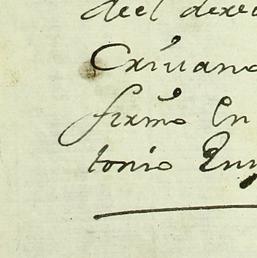 deel dere
Criuano
firmo En
tonio Enrr